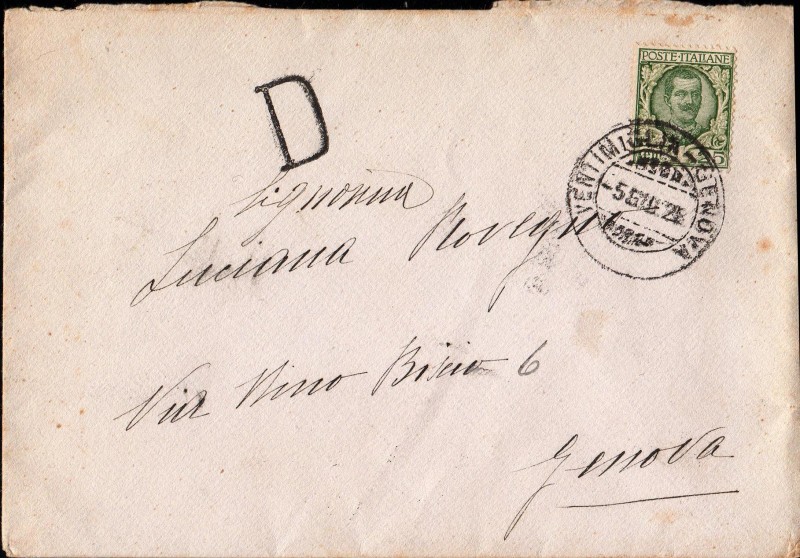 POSTE·ITALIANE
D
VENTIMIGLIA-GENOVA
Signorina
Luciana
Via Nino Bixio 6
Genova